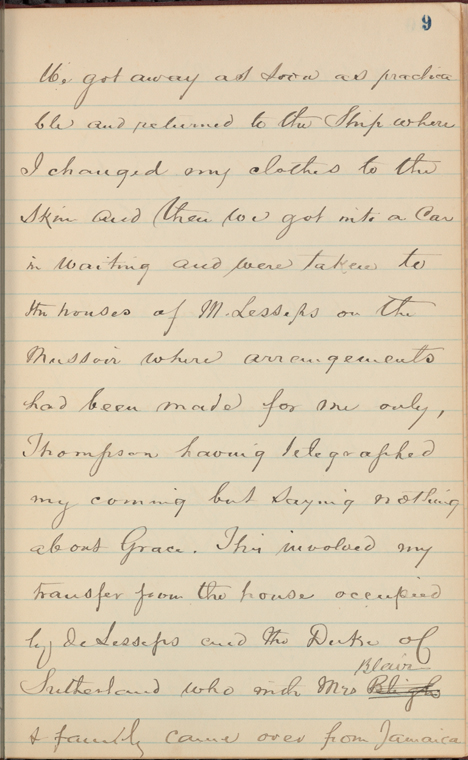 9
We got away as soon as practica
ble and returned to the Ship where
I changed my clothes to the
Skin and then we got into a Car
in waiting and were taken to
the houses of M. Lesseps on the
where arrangements
had been made for me only,
Thompson having telegraphed
my coming but saying nothing
about Grace. This involved my
transfer from the house occupied
by de Lesseps and the Duke of
Blair
Sutherland who with Mrs Bligh
& family came over from Jamaica